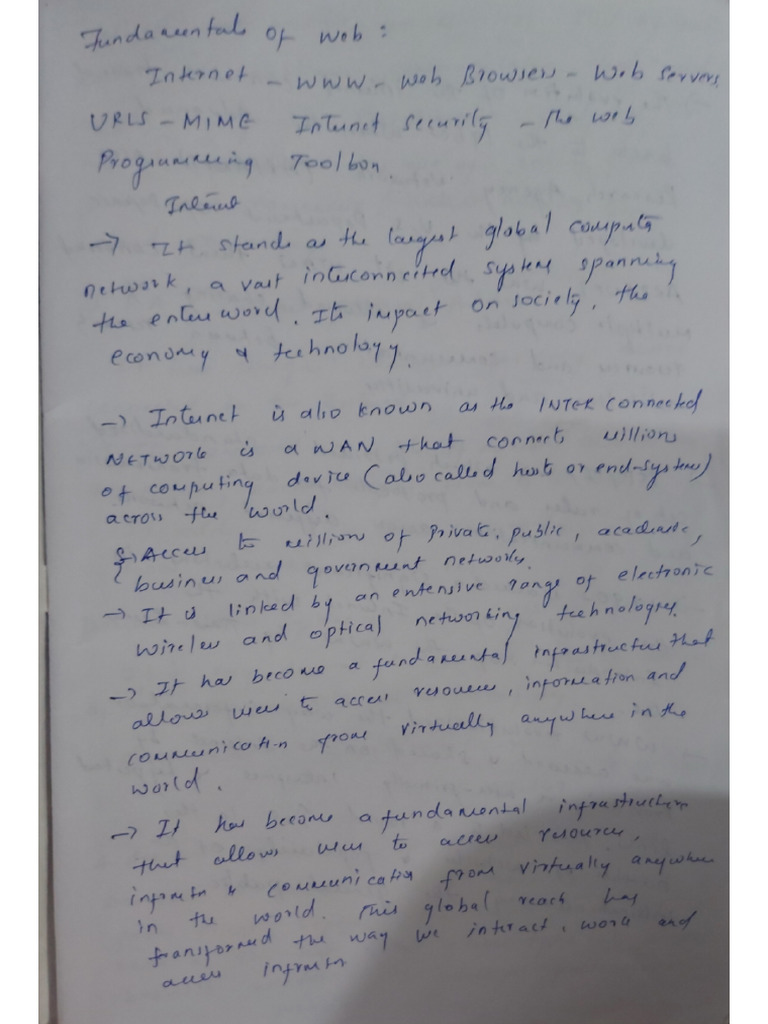 Fundamentals of Web :
Internet - WWW - Web Browsers - Web Servers
URLS - MIME Internet Security - The web
Programming Toolbox.
Internet
→ It stands as the largest global computer
network, a vast interconnected system spanning
the enter word. Its impact on society, the
economy & technology.
→ Internet is also known as the INTER Connected
NETWORK is a WAN that connects millions
of computing device (also called hosts or end-systems)
across the world.
Access to million of private, public, academic,
business and government networks.
→ It is linked by an extensive range of electronic
wireless and optical networking technologies.
→ It has become a fundamental infrastructure that
allows users to access resources, information and
communication from virtually anywhere in the
world.
→ It has become a fundamental infrastructure
that allows users to access resources,
& communication from virtually anywhere
in the world. This global reach has
transformed the way we interact, work and
access